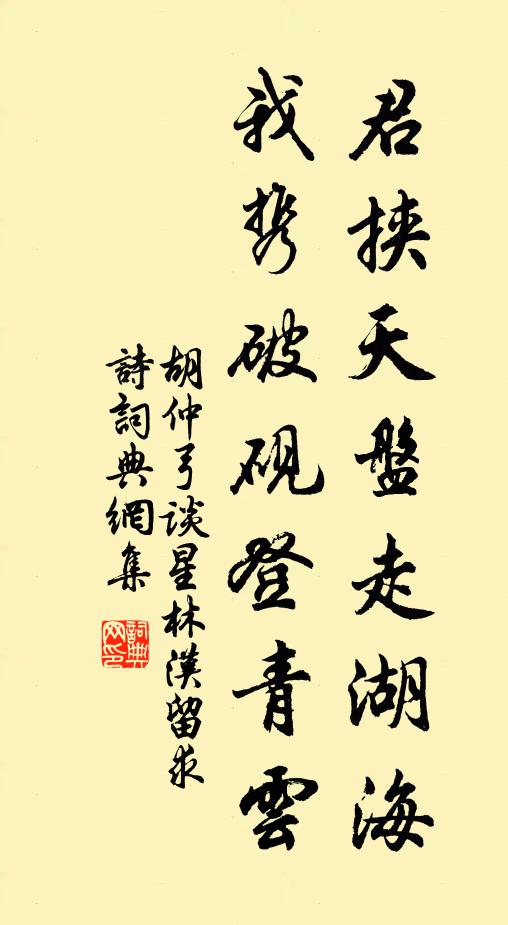 君挟天盤走湖海
我携破砚登青雲
胡仲弓谈星林漢留求
詩詞典網集
詞典网印